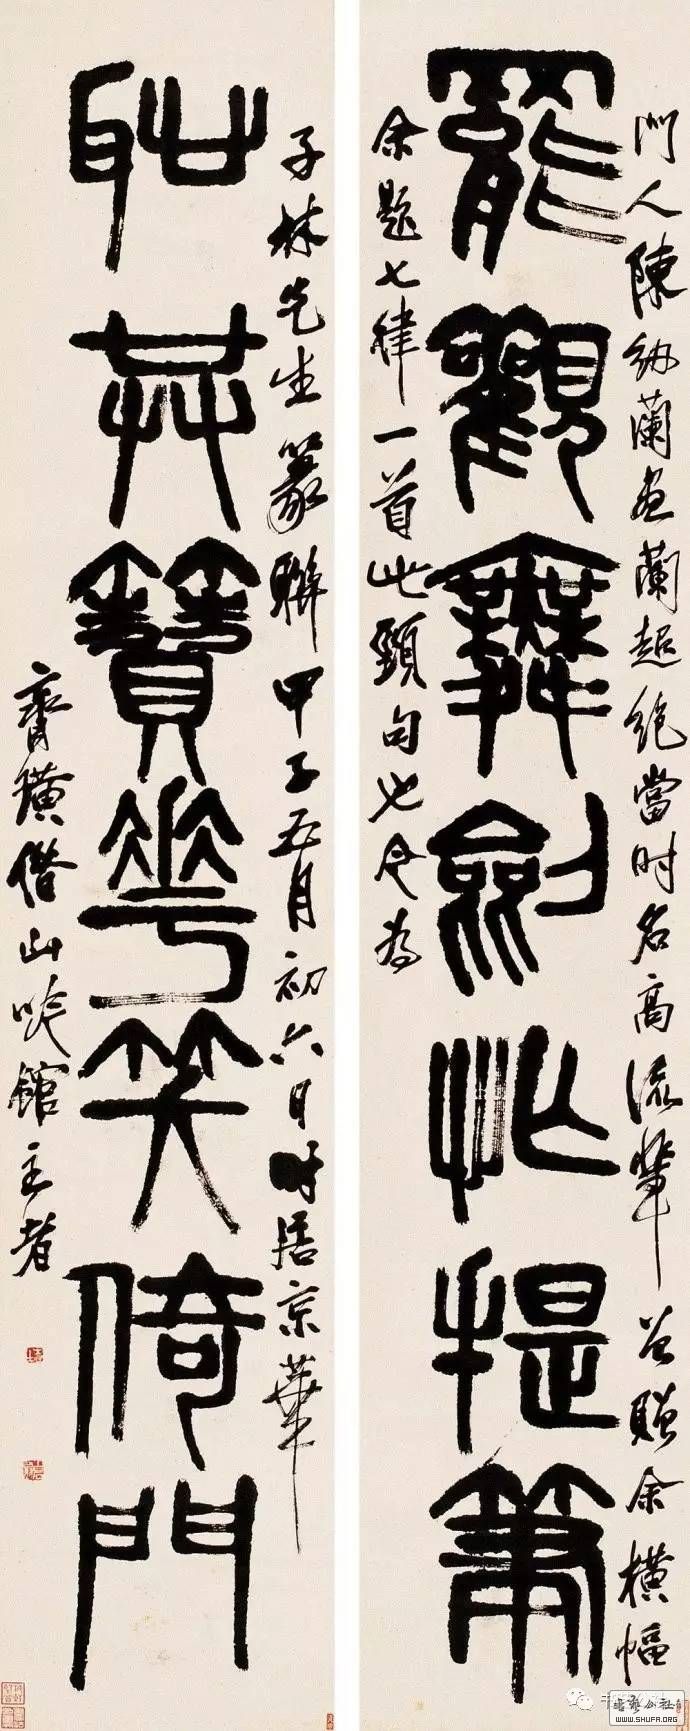 門人陳紉蘭畫蘭超絕當時名高流輩贈余橫幅
罷觀舞劍忙提筆
余題七律一首此頸句也今為
子林先生篆聯甲子五月初六日時居京華
恥共簪花笑倚門
齊璜借山吟館主者
書藝公社
WWW.SHUFA.ORG